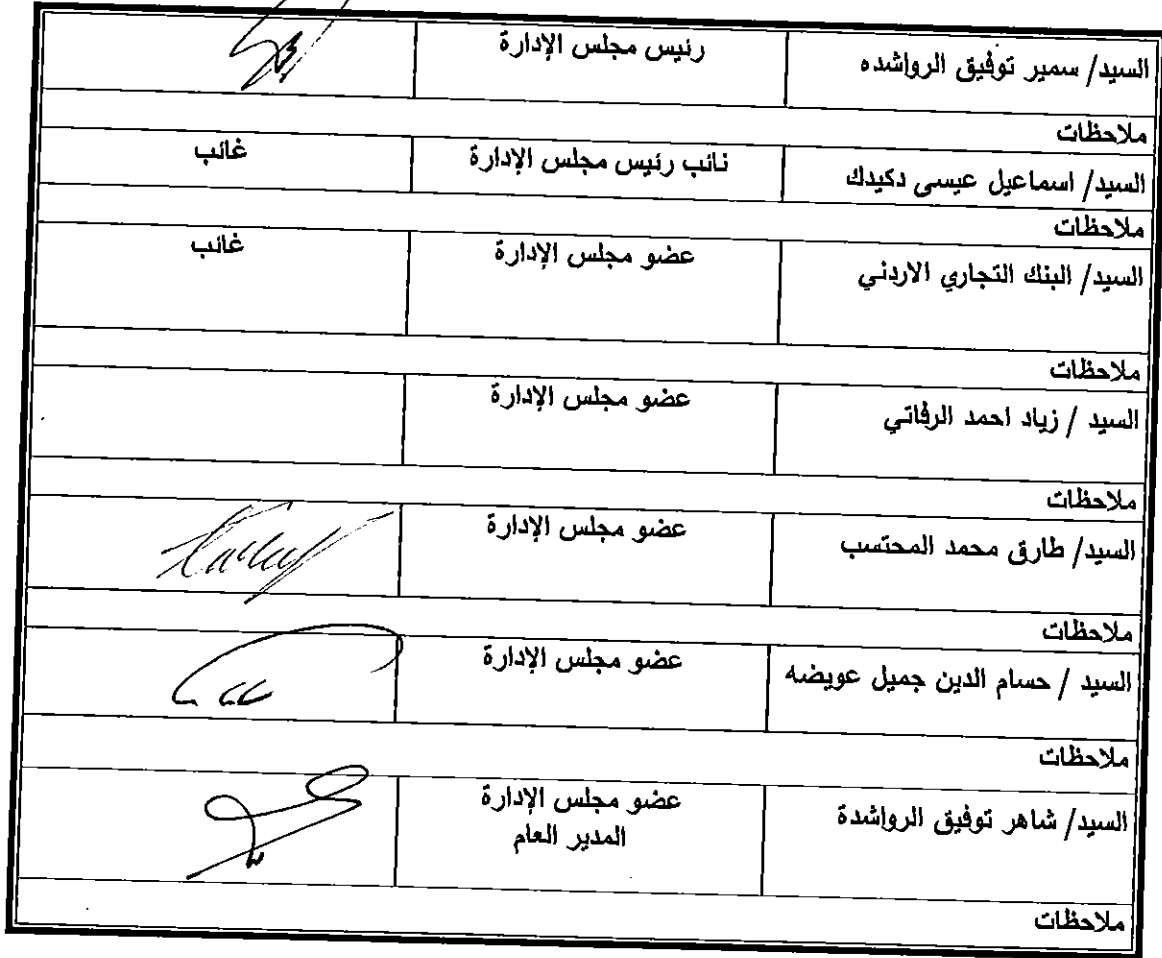 السيد/ سمير توفيق الرواشده رئيس مجلس الإدارة
ملاحظات
السيد/ اسماعيل عيسى دكيدك نائب رئيس مجلس الإدارة غائب
ملاحظات
السيد/ البنك التجاري الاردني عضو مجلس الإدارة غائب
ملاحظات
السيد / زياد احمد الرفاتي عضو مجلس الإدارة
ملاحظات
السيد/ طارق محمد المحتسب عضو مجلس الإدارة
ملاحظات
السيد / حسام الدين جميل عويضه عضو مجلس الإدارة
ملاحظات
السيد/ شاهر توفيق الرواشدة عضو مجلس الإدارة
المدير العام
ملاحظات